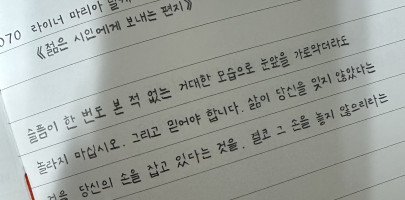 070 라이너 마리아
《젊은 시인에게 보내는 편지》
슬픔이 한 번도 본 적 없는 거대한 모습으로 눈앞을 가로막더라도
놀라지 마십시오. 그리고 믿어야 합니다. 삶이 당신을 잊지 않았다는
것을, 당신의 손을 잡고 있다는 것을, 결코 그 손을 놓지 않으리라는